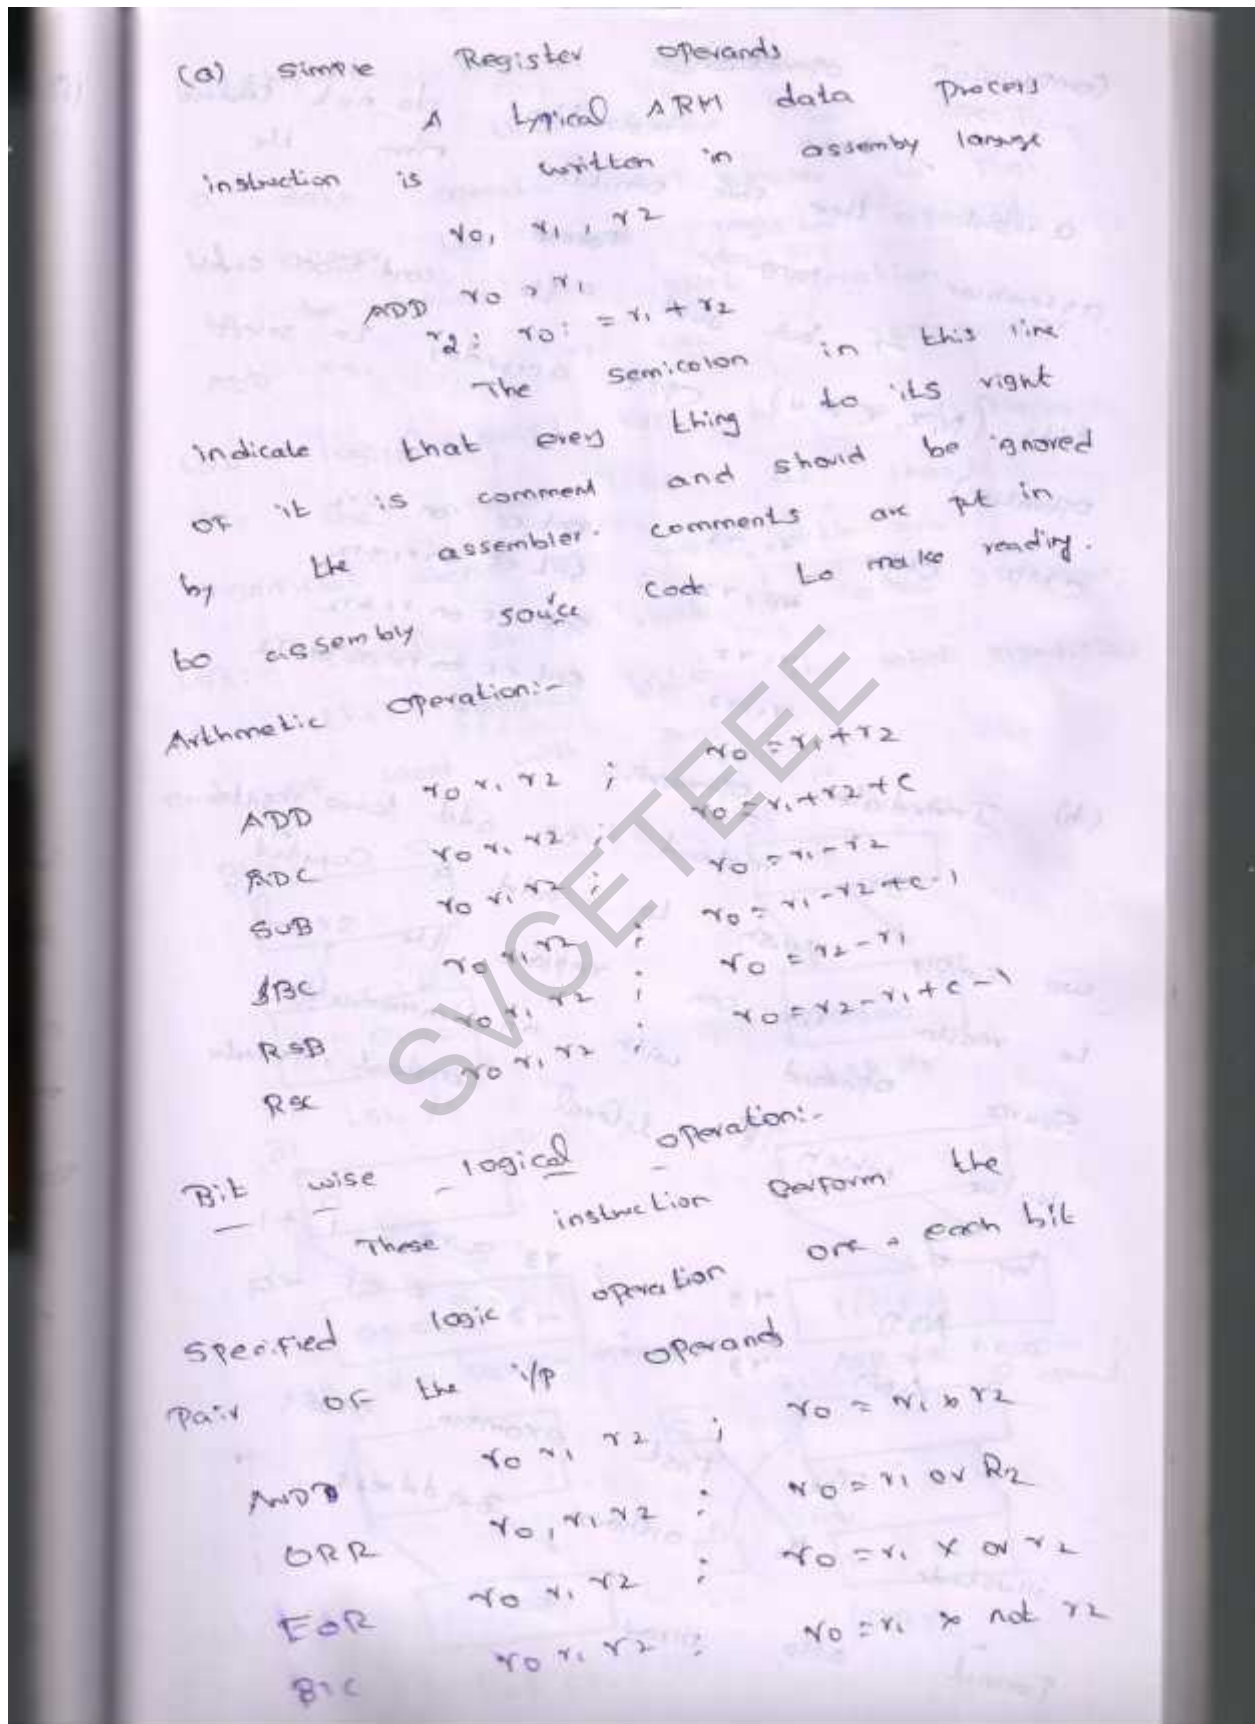 (a) Simple Register operands
A typical ARM data process
instruction is written in assemby languge
r0, r1, r2
ADD r0, r1
r2; r0: = r1 + r2
The semicolon in this line
indicate that every thing to its right
of it is comment and should be ignored
by the assembler. comments are put in
to assembly source code to make reading.
Arthmetic operation:-
ADD r0 r1 r2 ; r0 = r1 + r2
ADC r0 r1 r2 ; r0 = r1 + r2 + c
SUB r0 r1 r2 ; r0 = r1 - r2
SBC r0 r1 r2 ; r0 = r1 - r2 + c - 1
RSB r0 r1 r2 ; r0 = r2 - r1
RSC r0 r1 r2 ; r0 = r2 - r1 + c - 1
Bit wise logical operation:-
These instruction perform the
specified logic operation on each bit
pair of the i/p operand
AND r0 r1 r2 ; r0 = r1 & r2
ORR r0, r1 r2 ; r0 = r1 or R2
EOR r0 r1 r2 ; r0 = r1 x or r2
BIC r0 r1 r2 ; r0 = r1 & not r2
SVCETEEE